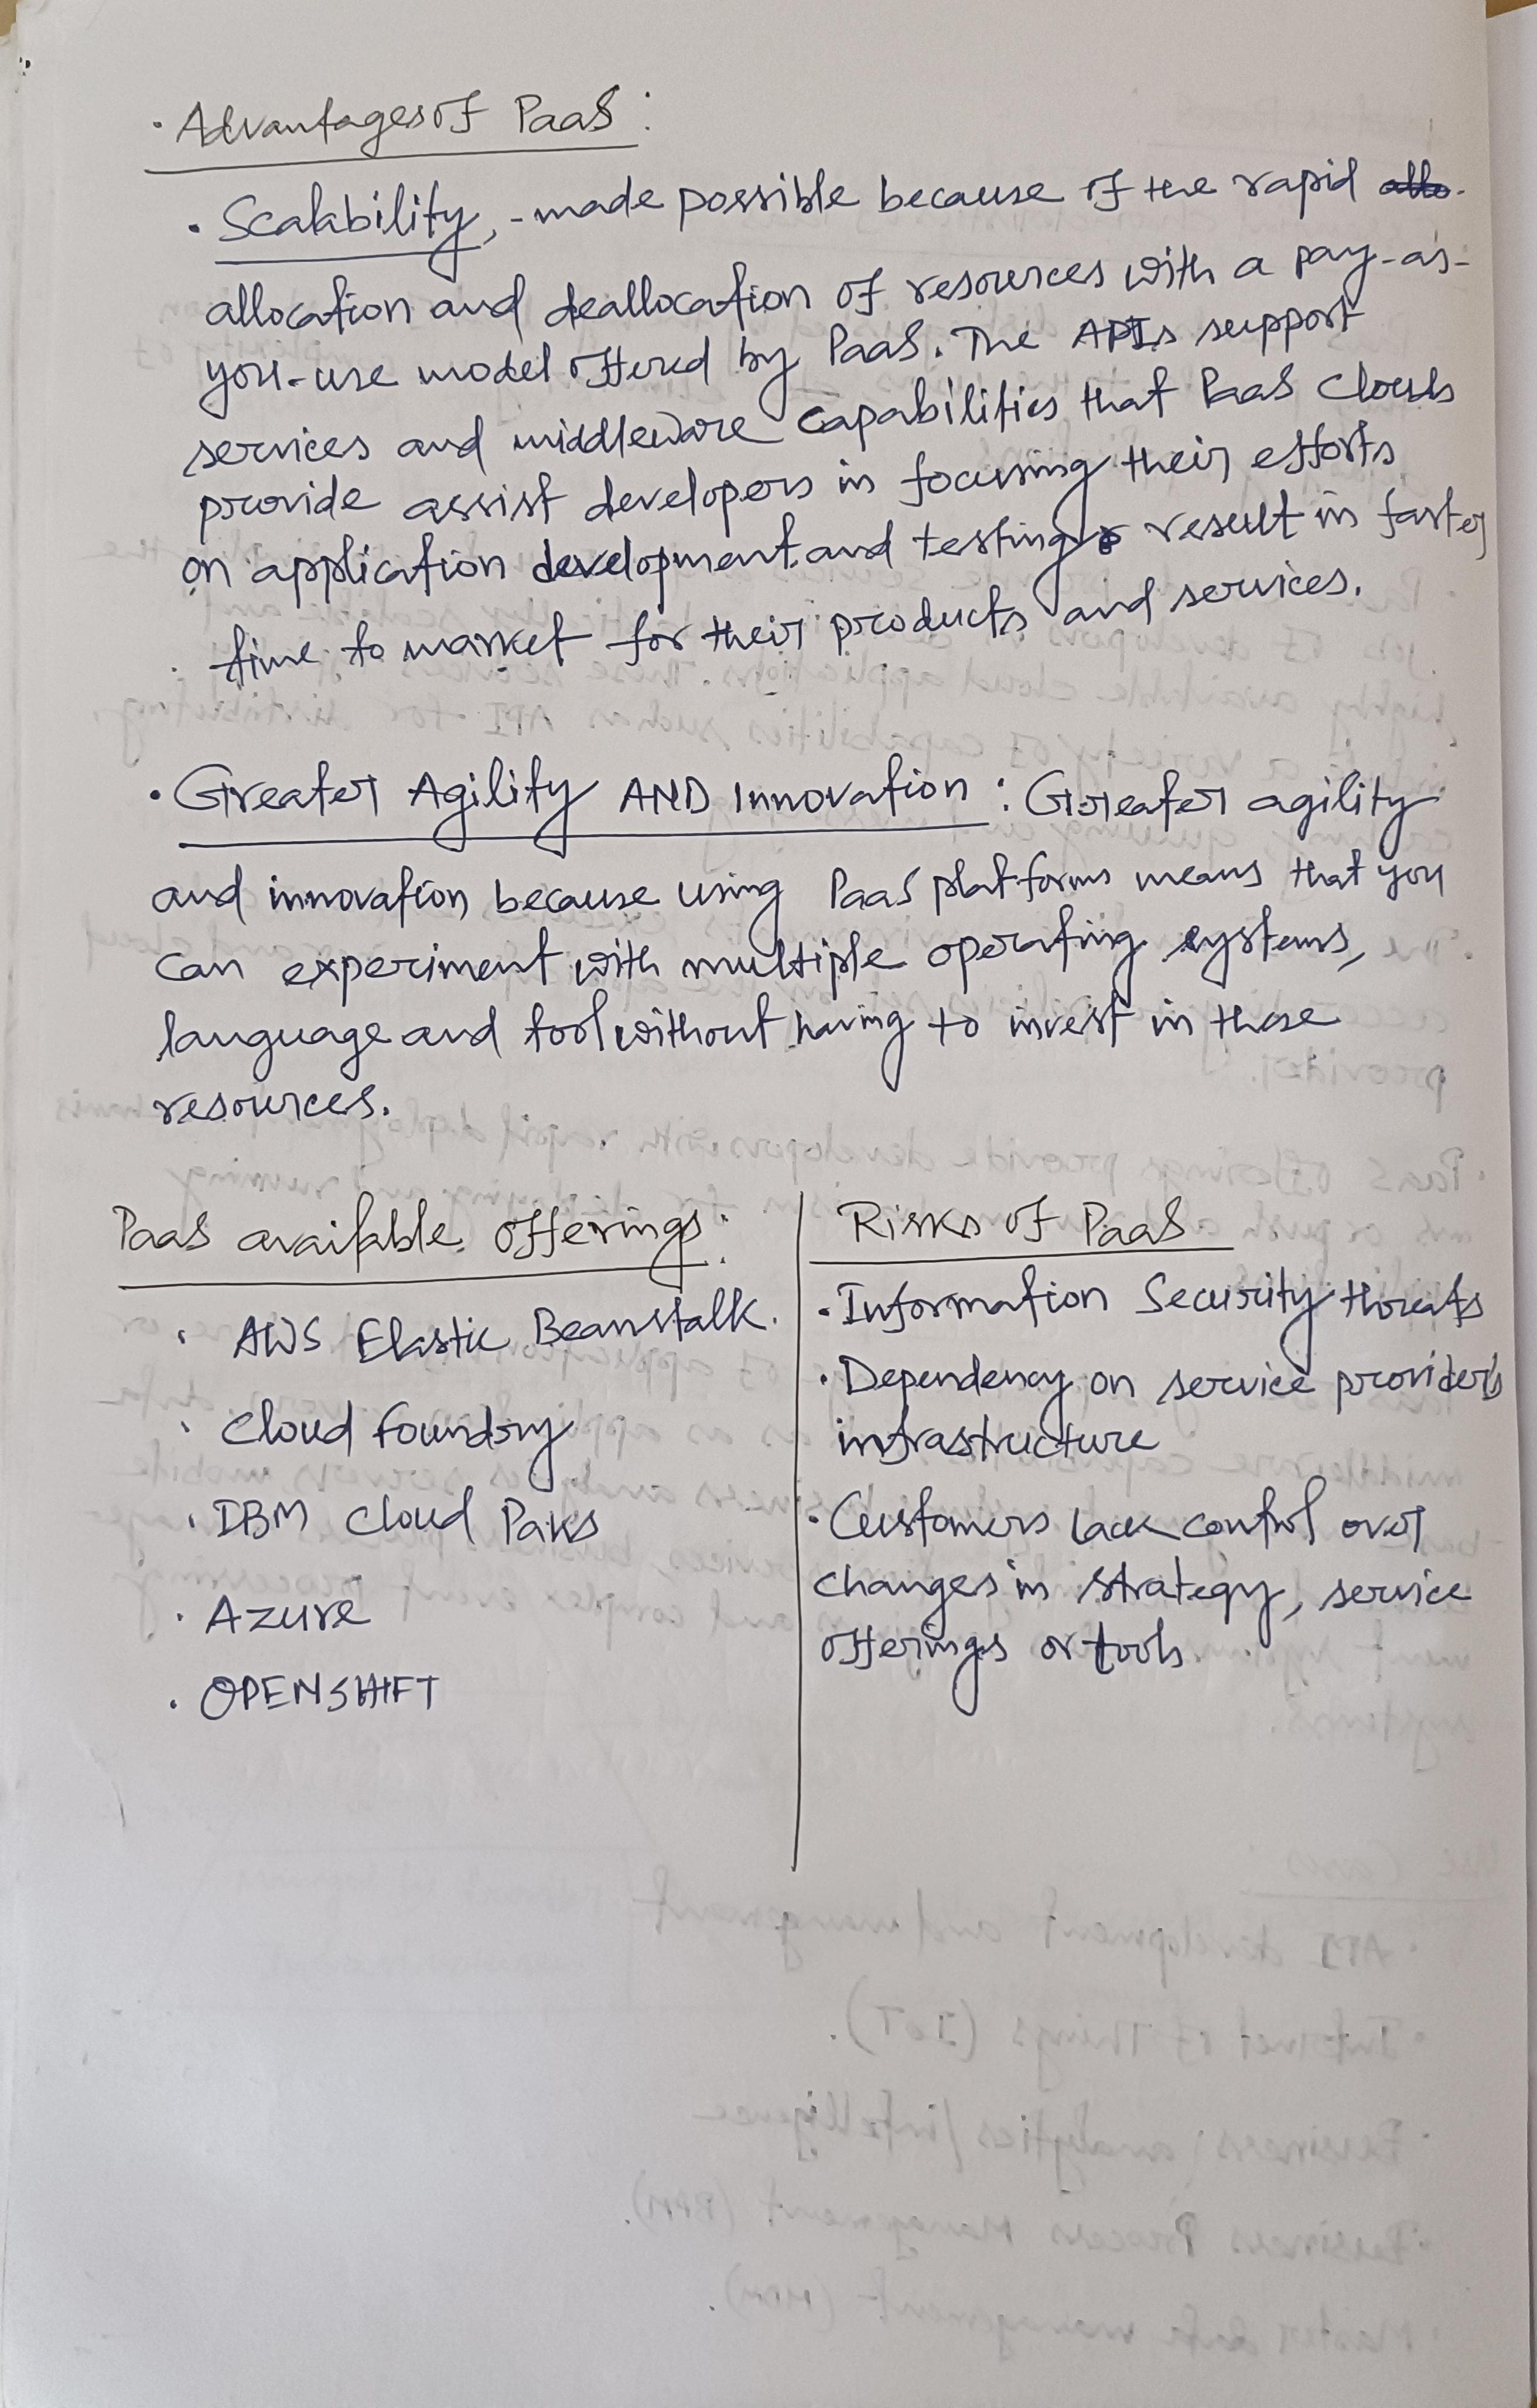 · Advantages of PaaS :
· Scalability, - made possible because of the rapid
allocation and deallocation of resources with a pay-as-
you-use model offered by PaaS. The APIs support
services and middleware capabilities that PaaS Clouds
provide assist developers in focusing their efforts
on application development and testing result in faster
time to market for their products and services.
· Greater Agility AND Innovation : Greater agility
and innovation because using PaaS platforms means that you
can experiment with multiple operating systems,
language and tool without having to invest in these
resources.
PaaS available offerings :
· AWS Elastic Beanstalk.
· Cloud foundry
· IBM Cloud Paks
· Azure
· OPENSHIFT
Risks of PaaS
· Information Security threats
· Dependency on service provider's
infrastructure
· Customers lack control over
changes in strategy, service
offerings or tools